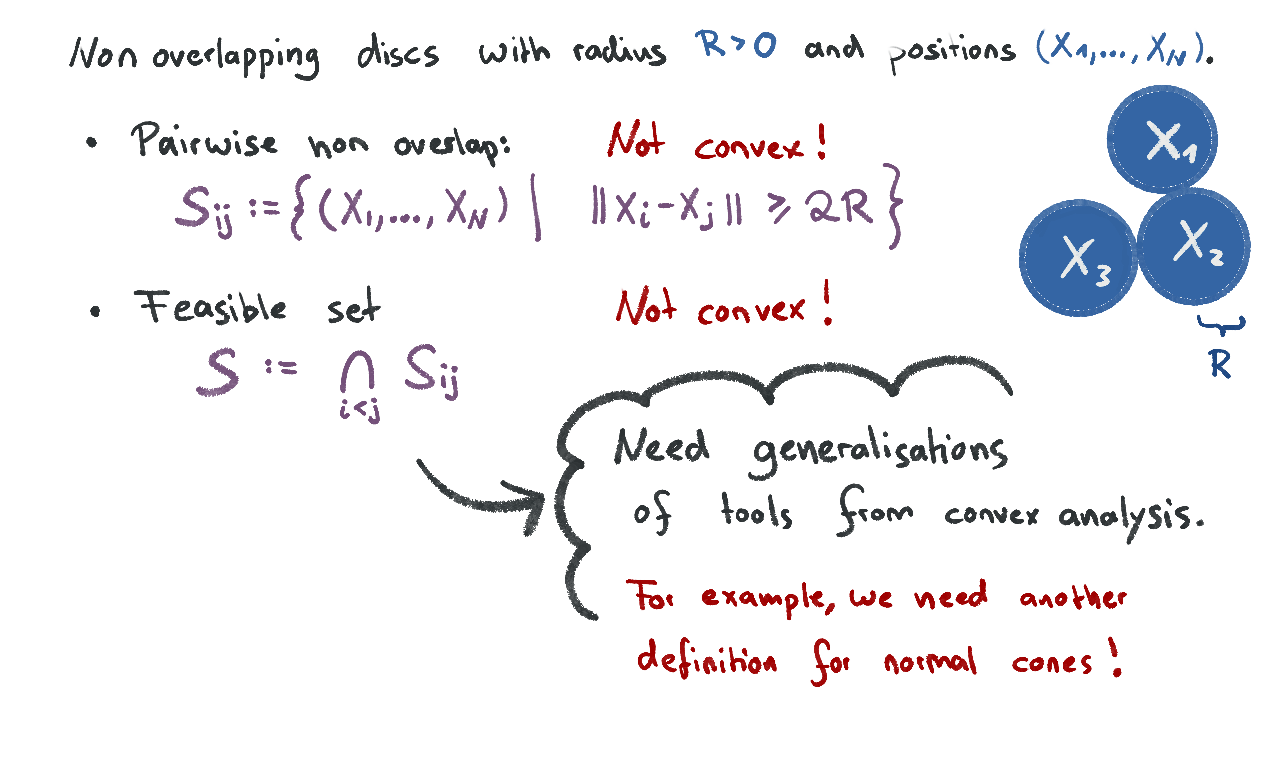 Non overlapping discs with radius R > 0 and positions (X₁,..., X_N).
• Pairwise non overlap: Not convex!
S_ij := {(X₁,..., X_N) | ||X_i - X_j|| ⩾ 2R}
X₁
X₃ X₂
• Feasible set Not convex!
R
S := ∩_{i<j} S_ij
Need generalisations
of tools from convex analysis.
For example, we need another
definition for normal cones!